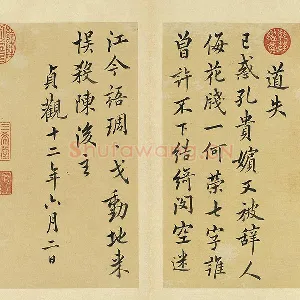 道失
已惑孔貴嬪又被辭人
侮花牋一何榮七字誰
曾許不下結綺閣空迷
江令語琱戈動地来
悮殺陳後主
貞觀十二年六月二日